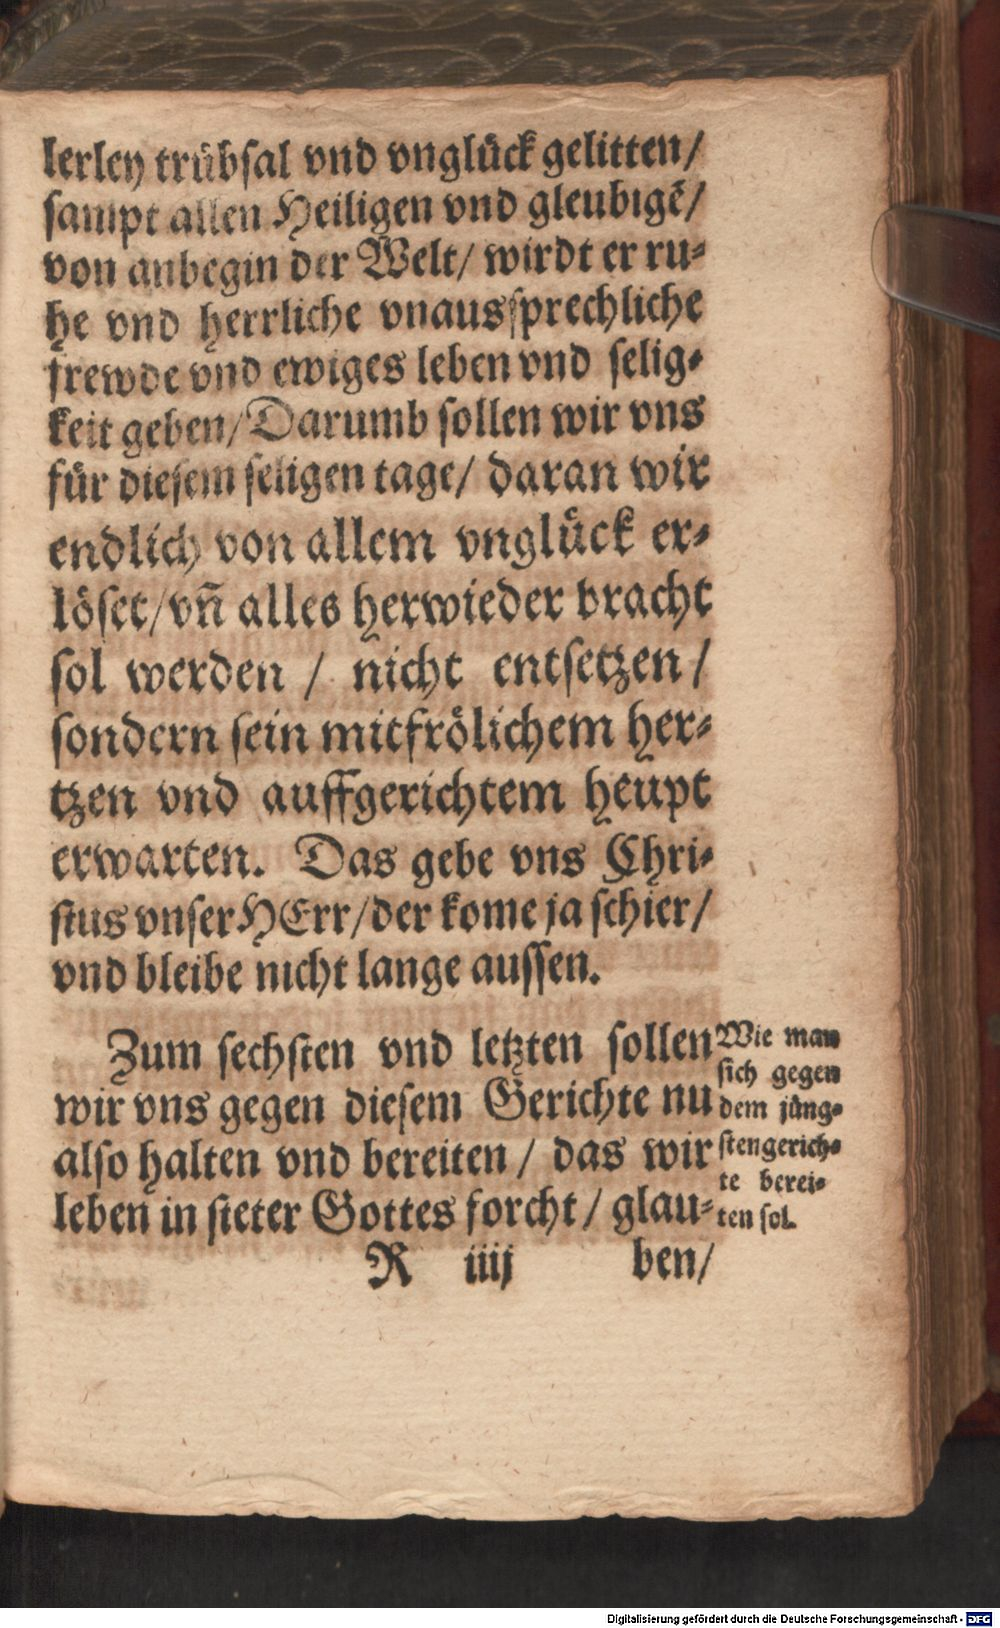 lerley trübsal vnd vnglück gelitten/
sampt allen Heiligen vnd gleubigē/
von anbegin der Welt/ wirdt er ru-
he vnd herrliche vnaussprechliche
frewde vnd ewiges leben vnd selig-
keit geben/ Darumb sollen wir vns
für diesem seligen tage/ daran wir
endlich von allem vnglück er-
löset/ vñ alles herwieder bracht
sol werden / nicht entsetzen/
sondern sein mit frölichem her-
tzen vnd auffgerichtem heupt
erwarten. Das gebe vns Chri-
stus vnser HErr/ der kome ja schier/
vnd bleibe nicht lange aussen.
Zum sechsten vnd letzten sollen
wir vns gegen diesem Gerichte nu
also halten vnd bereiten / das wir
leben in steter Gottes forcht / glau-
Wie man
sich gegen
dem jüng-
sten gerich-
te berei-
ten sol.
R iiij ben/
Digitalisierung gefördert durch die Deutsche Forschungsgemeinschaft - DFG